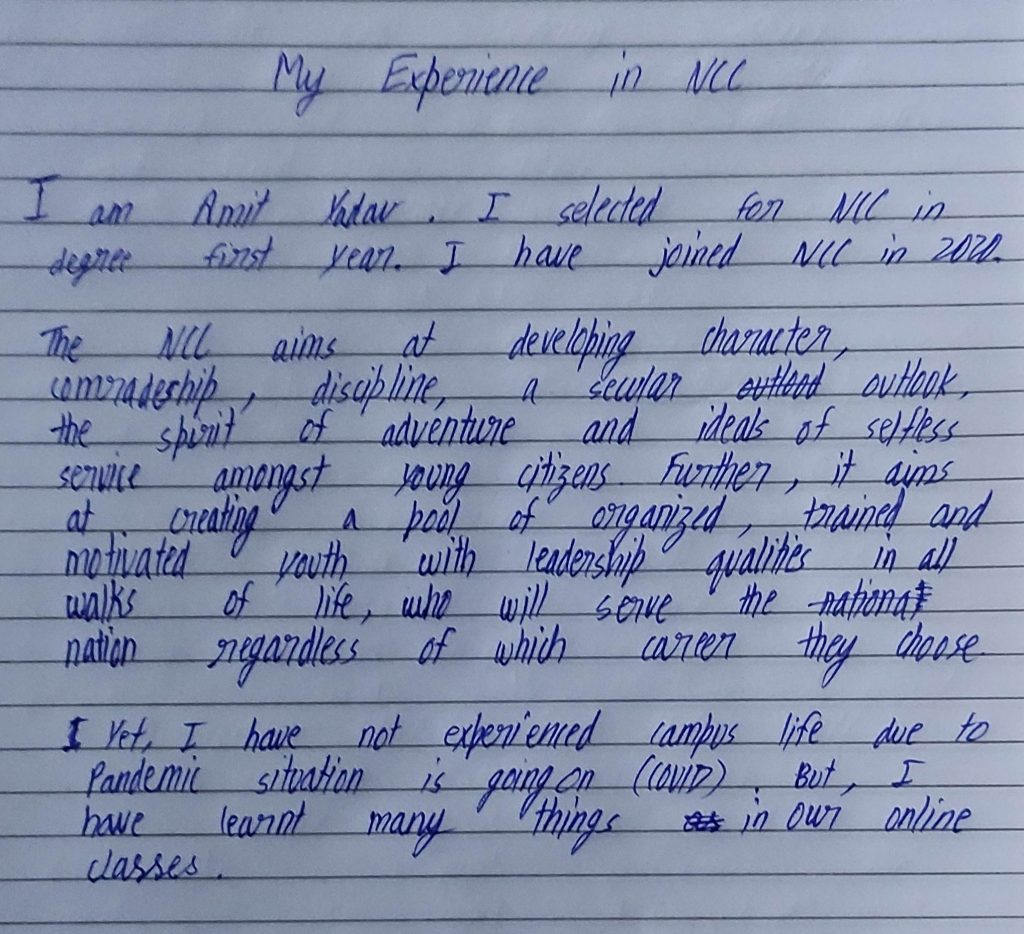 My Experience in NCC
I am Amit Yadav. I selected for NCC in
degree first year. I have joined NCC in 2020.
The NCC aims at developing character,
comradeship, discipline, a secular outlook,
the spirit of adventure and ideals of selfless
service amongst young citizens. Further, it aims
at creating a pool of organized, trained and
motivated youth with leadership qualities in all
walks of life, who will serve the national
nation regardless of which career they choose.
I Yet, I have not experienced campus life due to
Pandemic situation is going on (COVID). But, I
have learnt many things in our online
classes.